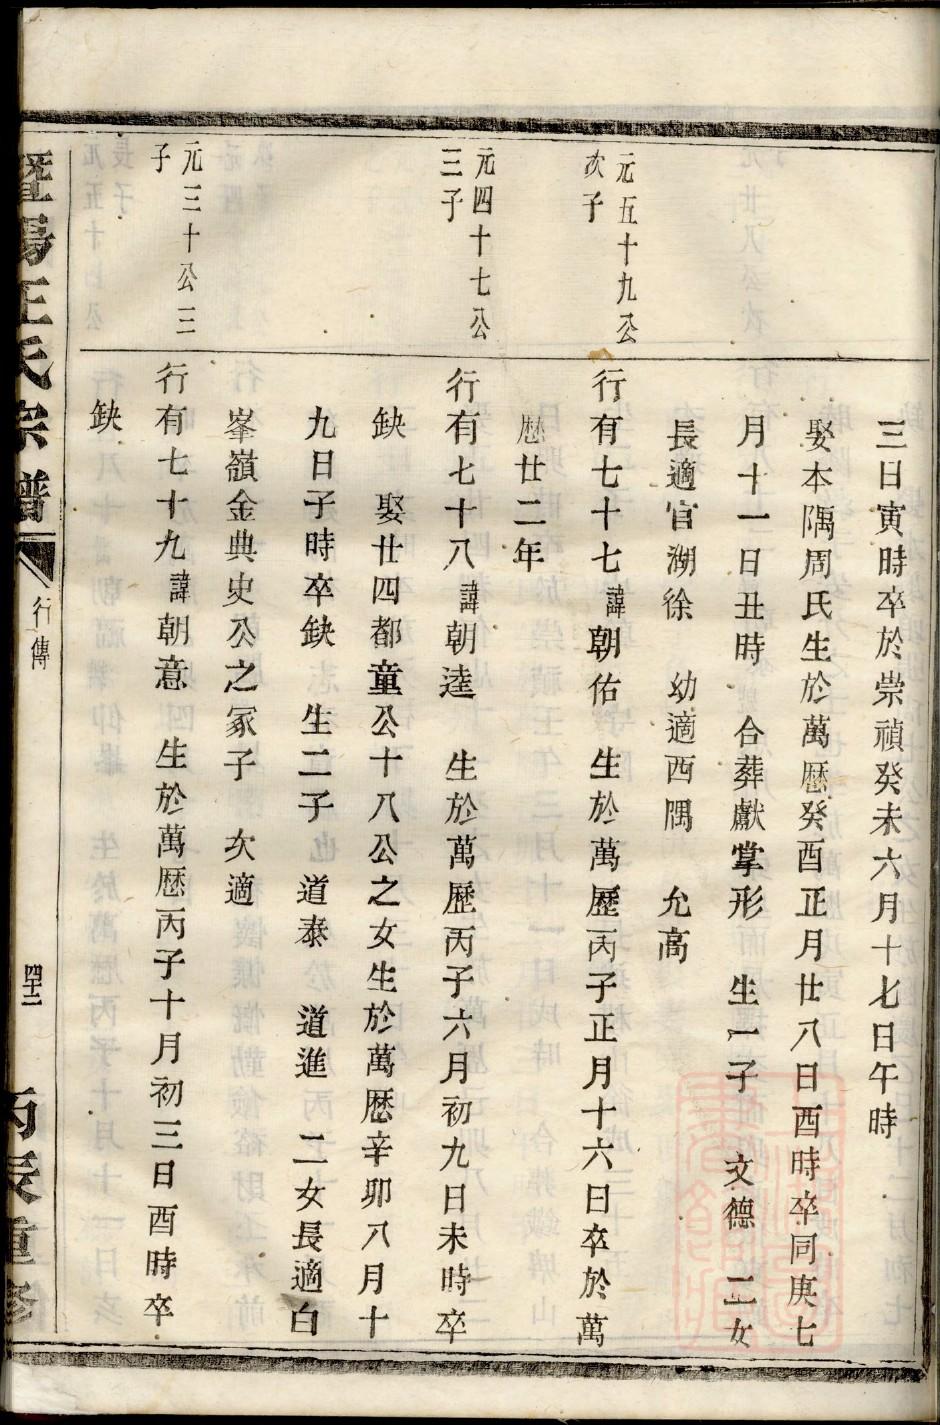 三日寅時卒於崇禎癸未六月十七日午時
娶本隅周氏生於萬曆癸酉正月廿八日酉時卒同庚七
月十一日丑時 合葬獻掌形 生一子 文德 二女
長適官湖徐 幼適西隅 允高
元五十九公
次子
行有七十七諱朝佑 生於萬歷丙子正月十六日卒於萬
歷廿二年
元四十七公
三子
行有七十八諱朝逵 生於萬歷丙子六月初九日未時卒
缺 娶廿四都童公十八公之女生於萬歷辛卯八月十
九日子時卒缺 生二子 道泰 道進 二女長適白
峯嶺金典史公之冢子 次適
元三十公三
子
行有七十九諱朝意 生於萬歷丙子十月初三日酉時卒
缺
暨陽王氏宗譜
行傳
四十二
丙辰重修